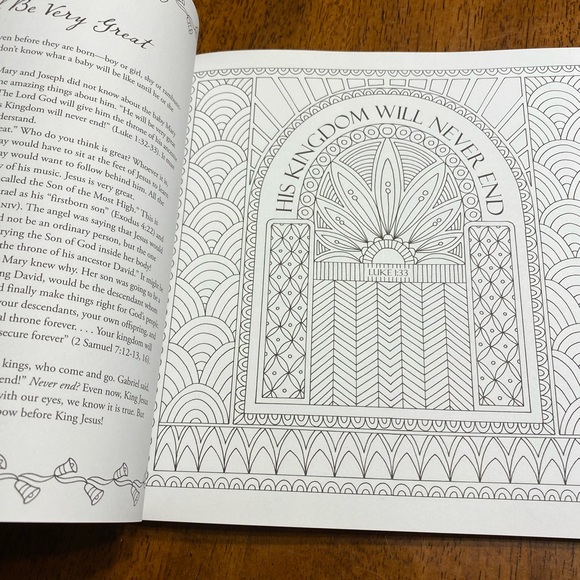 Be Very Great
ven before they are born—boy or girl, shy or
don't know what a baby will be like until he or she
Mary and Joseph did not know about the baby. Mary
me amazing things about him. "He will be very great
The Lord God will give him the throne of his ancestor
s Kingdom will never end!" (Luke 1:32-33).
derstand.
eat." Who do you think is great? Whoever it is,
ay would have to sit at the feet of Jesus to learn
ay would want to follow behind him. All the
y of his music. Jesus is very great.
called the Son of the Most High." This is
rael as his "firstborn son" (Exodus 4:22) and
NIV). The angel was saying that Jesus would
d not be an ordinary person, but the one
rrying the Son of God inside her body!
the throne of his ancestor David." It might be
Mary knew why. Her son was going to be a
ng David, would be the descendant whom
d finally make things right for God's people.
your descendants, your own offspring, and
al throne forever. . . . Your kingdom will
secure forever" (2 Samuel 7:12-13, 16).
kings, who come and go. Gabriel said,
end!" Never end? Even now, King Jesus
with our eyes, we know it is true. But
bow before King Jesus!
HIS KINGDOM WILL NEVER END
LUKE 1:33